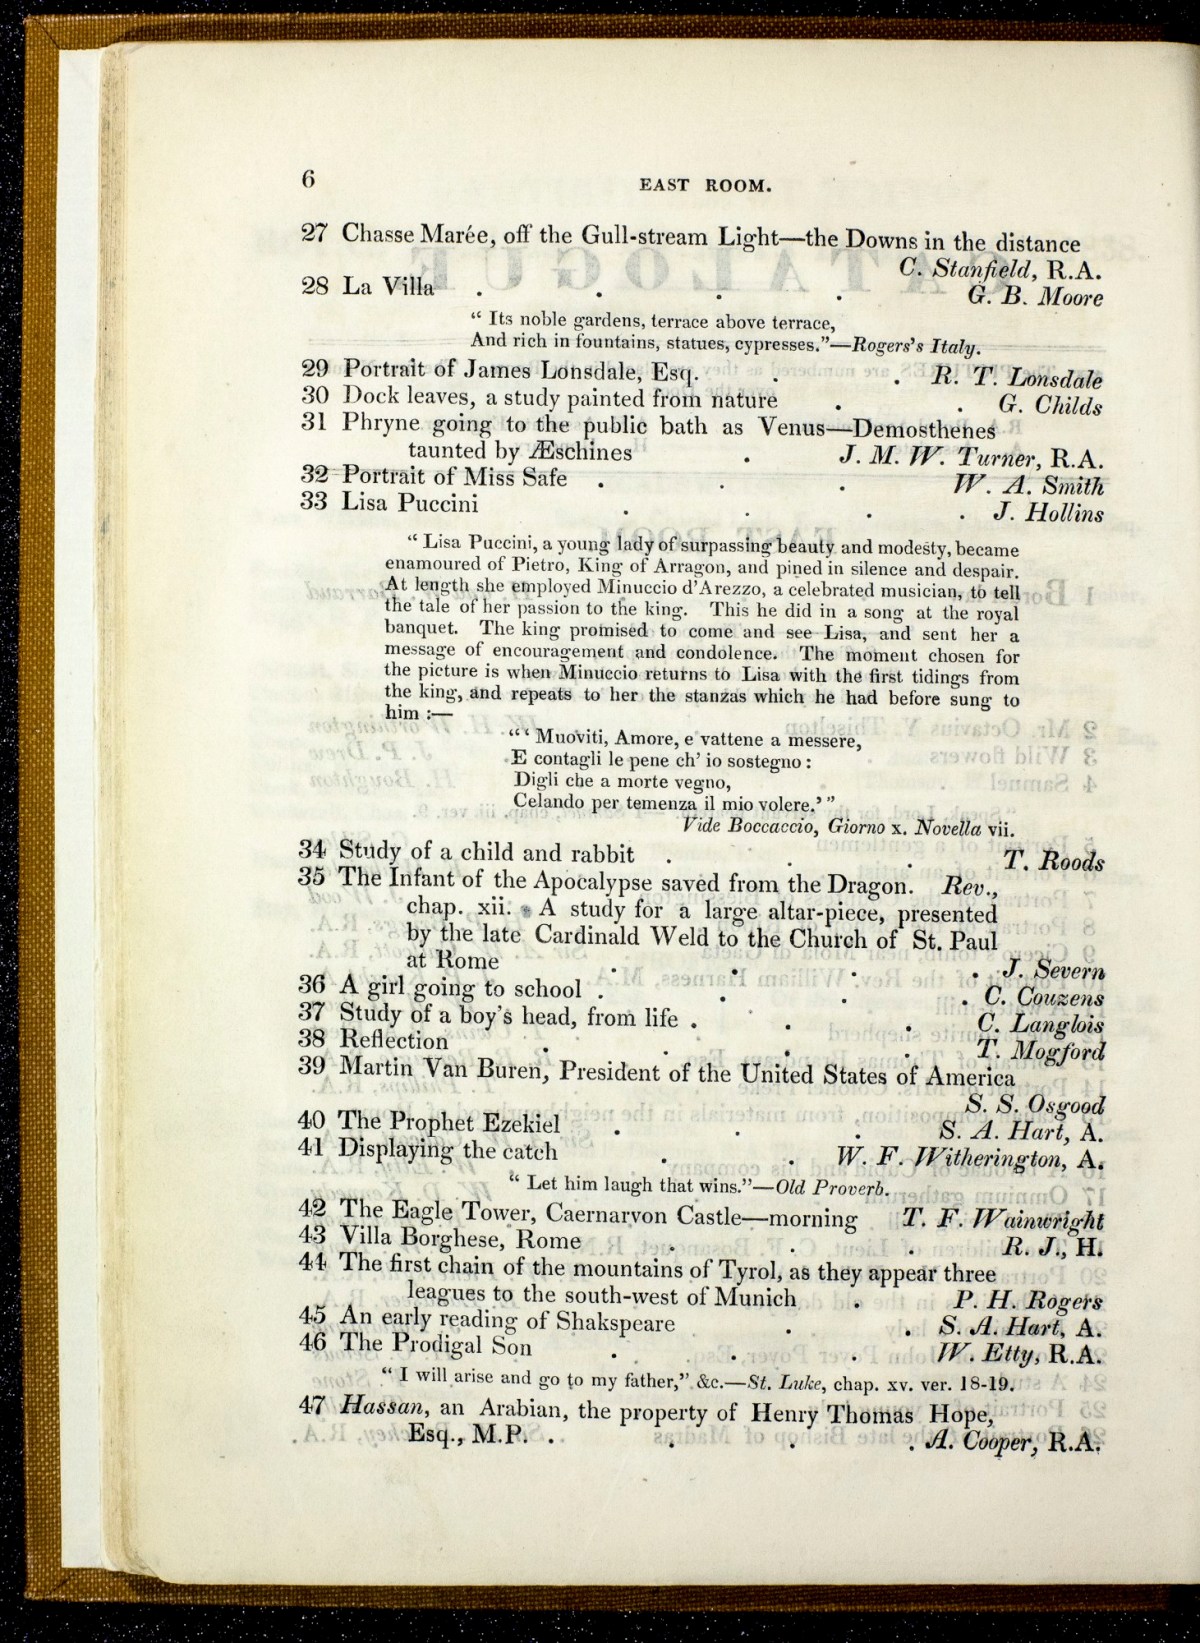 6 EAST ROOM.
27 Chasse Marée, off the Gull-stream Light—the Downs in the distance
C. Stanfield, R.A.
28 La Villa . . . . G. B. Moore
“ Its noble gardens, terrace above terrace,
And rich in fountains, statues, cypresses.”—Rogers's Italy.
29 Portrait of James Lonsdale, Esq. . . R. T. Lonsdale
30 Dock leaves, a study painted from nature . . G. Childs
31 Phryne going to the public bath as Venus—Demosthenes
taunted by Æschines . J. M. W. Turner, R.A.
32 Portrait of Miss Safe . . . W. A. Smith
33 Lisa Puccini . . . . J. Hollins
“ Lisa Puccini, a young lady of surpassing beauty and modesty, became
enamoured of Pietro, King of Arragon, and pined in silence and despair.
At length she employed Minuccio d'Arezzo, a celebrated musician, to tell
the tale of her passion to the king. This he did in a song at the royal
banquet. The king promised to come and see Lisa, and sent her a
message of encouragement and condolence. The moment chosen for
the picture is when Minuccio returns to Lisa with the first tidings from
the king, and repeats to her the stanzas which he had before sung to
him :—
“ ‘ Muoviti, Amore, e vattene a messere,
E contagli le pene ch' io sostegno :
Digli che a morte vegno,
Celando per temenza il mio volere.’ ”
Vide Boccaccio, Giorno x. Novella vii.
34 Study of a child and rabbit . . . T. Roods
35 The Infant of the Apocalypse saved from the Dragon. Rev.,
chap. xii. A study for a large altar-piece, presented
by the late Cardinald Weld to the Church of St. Paul
at Rome . . . . J. Severn
36 A girl going to school . . . . C. Couzens
37 Study of a boy's head, from life . . . C. Langlois
38 Reflection . . . . T. Mogford
39 Martin Van Buren, President of the United States of America
S. S. Osgood
40 The Prophet Ezekiel . . . S. A. Hart, A.
41 Displaying the catch . . W. F. Witherington, A.
“ Let him laugh that wins.”—Old Proverb.
42 The Eagle Tower, Caernarvon Castle—morning T. F. Wainwright
43 Villa Borghese, Rome . . . R. J., H.
44 The first chain of the mountains of Tyrol, as they appear three
leagues to the south-west of Munich . P. H. Rogers
45 An early reading of Shakspeare . . S. A. Hart, A.
46 The Prodigal Son . . . W. Etty, R.A.
“ I will arise and go to my father,” &c.—St. Luke, chap. xv. ver. 18-19.
47 Hassan, an Arabian, the property of Henry Thomas Hope,
Esq., M.P. . . . . A. Cooper, R.A.